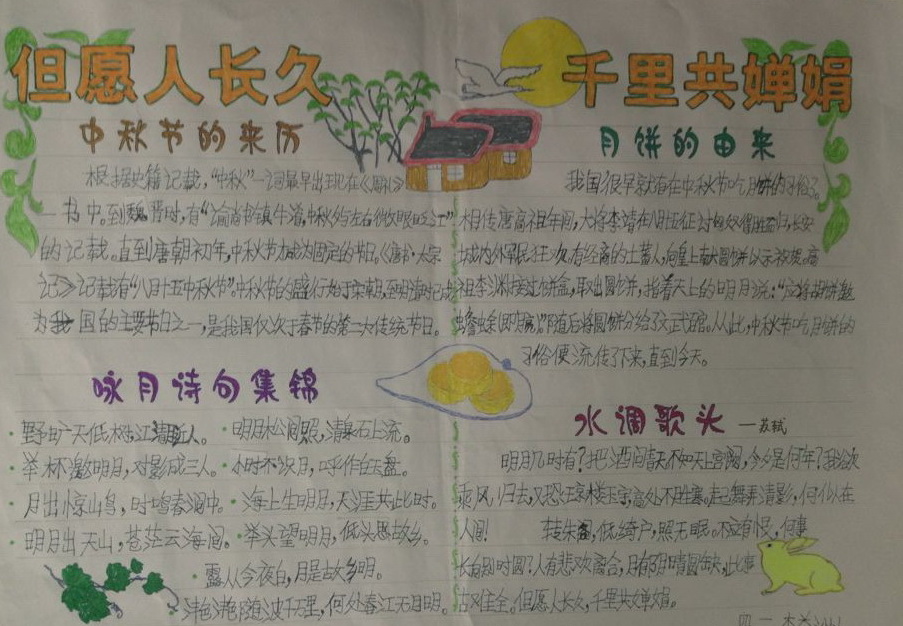 但愿人长久
千里共婵娟
中秋节的来历
根据史籍记载，“中秋”一词最早出现在《周礼》
一书中。到魏晋时，有“谕尚书镇牛渚，中秋夕与左右微服泛江”
的记载。直到唐朝初年，中秋节才成为固定的节日。《唐书·太宗
记》记载有“八月十五中秋节”。中秋节的盛行始于宋朝，至明清时，已成
为我国的主要节日之一，是我国仅次于春节的第二大传统节日。
月饼的由来
我国很早就有在中秋节吃月饼的习俗了
相传唐高祖年间，大将李靖
城内外军民狂欢。有经商的土蕃人，向皇上献圆饼以示祝贺。高
祖李渊接过饼盒，取出圆饼，指着天上的明月说：“应将胡饼邀
蟾蜍(即月亮)”随后将圆饼分给了文武百官。从此，中秋节吃月饼的
习俗便流传了下来，直到今天。
咏月诗句集锦
·野旷天低树，江清月近人。·明月松间照，清泉石上流。
·举杯邀明月，对影成三人。·小时不识月，呼作白玉盘。
·月出惊山鸟，时鸣春涧中。·海上生明月，天涯共此时。
·明月出天山，苍茫云海间。·举头望明月，低头思故乡。
·露从今夜白，月是故乡明。
·滟滟随波千万里，何处春江无月明。
水调歌头 —苏轼
明月几时有？把酒问青天。不知天上宫阙，今夕是何年？我欲
乘风归去，又恐琼楼玉宇，高处不胜寒。起舞弄清影，何似在
人间！ 转朱阁，低绮户，照无眠。不应有恨，何事
长向别时圆？人有悲欢离合，月有阴晴圆缺，此事
古难全。但愿人长久，千里共婵娟。
四一